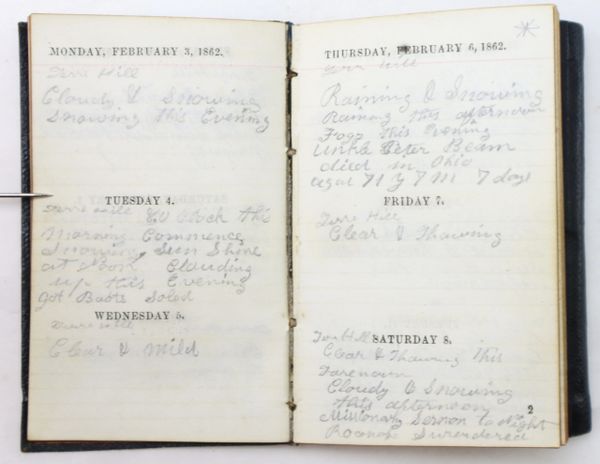 MONDAY, FEBRUARY 3, 1862.
Terre Hill
Cloudy & Snowing
Snowing this Evening
TUESDAY 4.
Terre Hill this
Morning Commence
Snowing, Sun Shone
at Noon Clouding
up this Evening
got Boots Soled
WEDNESDAY 5.
Terre Hill
Clear & Mild
THURSDAY, FEBRUARY 6, 1862.
Terre Hill
Raining & Snowing
Raining this afternoon
Fogy this Evening
Unkle Peter Beam
died in Ohio
aged 71 y 7 m 7 days
FRIDAY 7.
Terre Hill
Clear & Thawing
SATURDAY 8.
Ter Hill
Clear & Thawing this
Forenoon
Cloudy & Snowing
this afternoon
Missionary Sermon to Night
Roanoke Surendered
2